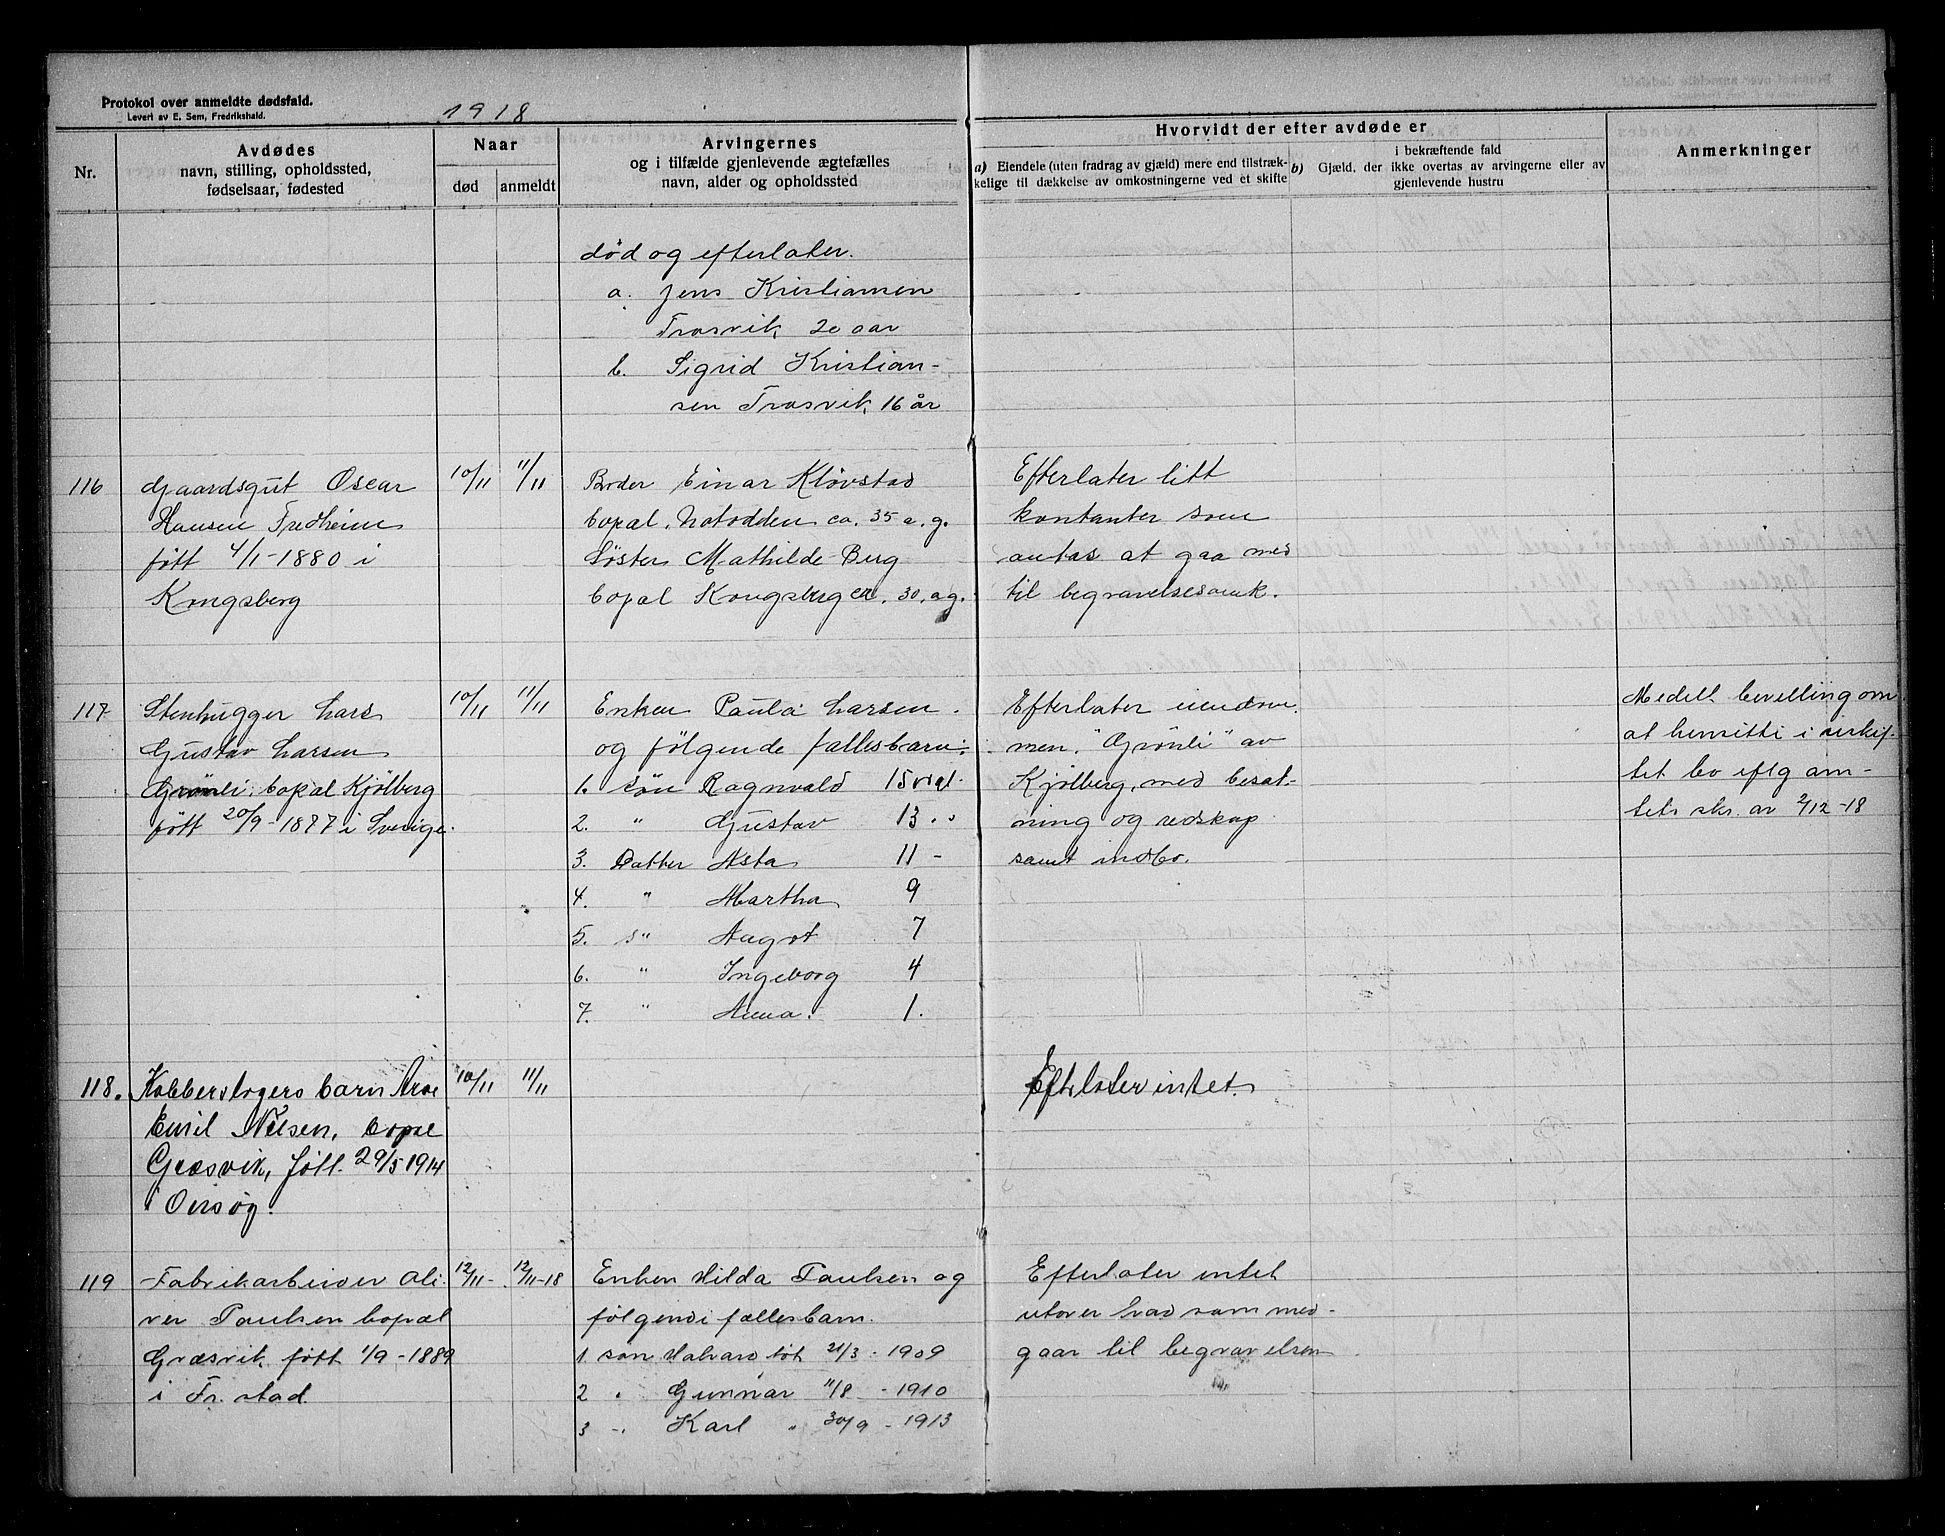 Protokol over anmeldte dødsfald.
Levert av E. Sem, Fredrikshald.
1918
Nr.
Avdødes
navn, stilling, opholdssted,
fødselsaar, fødested
Naar
død
anmeldt
Arvingernes
og i tilfælde gjenlevende ægtefælles
navn, alder og opholdssted
Hvorvidt der efter avdøde er
a) Eiendele (uten fradrag av gjæld) mere end tilstræk-
kelige til dækkelse av omkostningerne ved et skifte
i bekræftende fald
b) Gjæld, der ikke overtas av arvingerne eller av
gjenlevende hustru
Anmerkninger
død og efterlater.
a. Jens Kristiansen
Trosvik 20 aar
b. Sigrid Kristian-
sen Trosvik, 16 år
116
Gaardsgut Oscar
Hansen Fredheim
født 4/1-1880 i
Kongsberg
10/11
11/11
Broder Einar Kløvstad
bopæl. Notodden ca. 35 a. g.
Søster Mathilde Berg
bopæl Kongsberg ca. 30. a g.
Efterlater litt
kontanter som
antas at gaa med
til begravelsesomk.
117
Stenhugger Lars
Gustav Larsen
Grønli, bopæl Kjølberg
født 20/9-1877 i Sverige.
10/11
11/11
Enken Paula Larsen.
og følgende fællesbarn:
1. søn Ragnvald 15
2. " Gustav 13 "
3. Datter Asta 11 -
4. " Martha 9
5. " Aagot 7
6. " Ingeborg 4
7. " Anna. 1.
Efterlater eiendom-
men "Grønli" av
Kjølberg, med besæt-
ning og redskap
samt indbo.
Medelt bevilling om
at hensitte i uskif-
tet bo eflg am-
tets skr. av 2/12-18
118.
Kobberslagers barn
Emil Nilsen, bopæl
Græsvik, født. 29/5 1914
i Onsøy.
10/11
11/11
Efterlater intet.
119
Fabrikarbeider Oli-
ver Paulsen bopæl
Græsvik født 1/9-1889
i Fr.stad.
12/11-
12/11-18
Enken Hilda Paulsen og
følgende fællesbarn.
1 søn Halvard føt 21/3 - 1909
2 " Gunnar 11/8 - 1910
3 -" Karl " 30/9 - 1913
Efterlater intet
utover hvad som med-
gaar til begravelsen